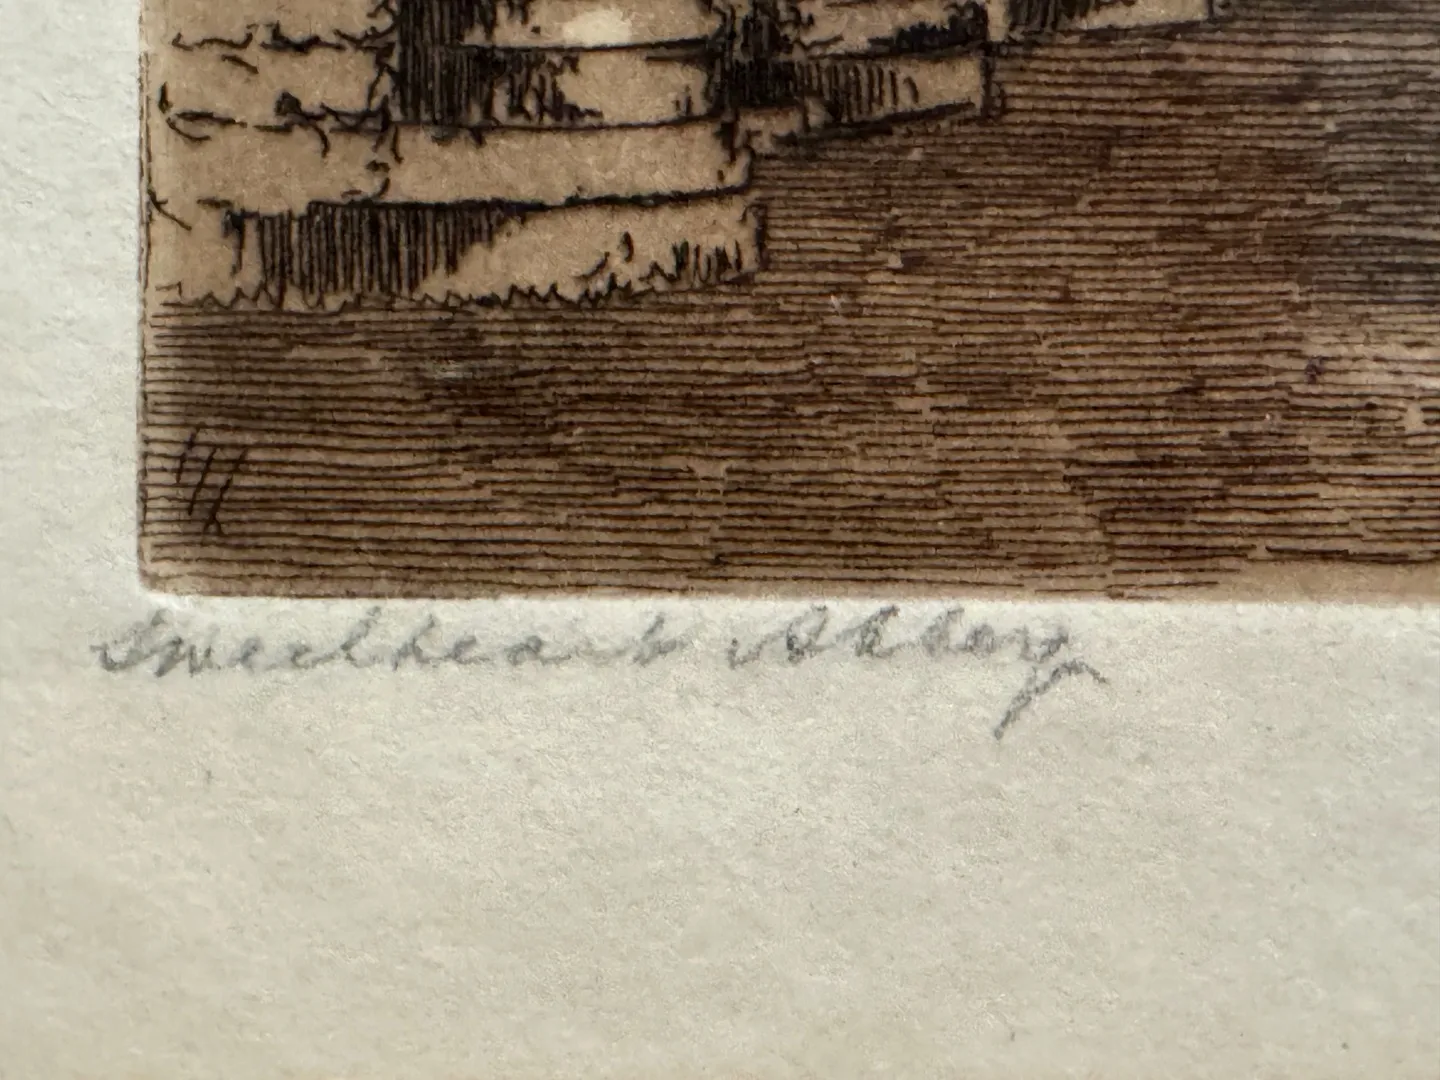 Sweetheart Abbey